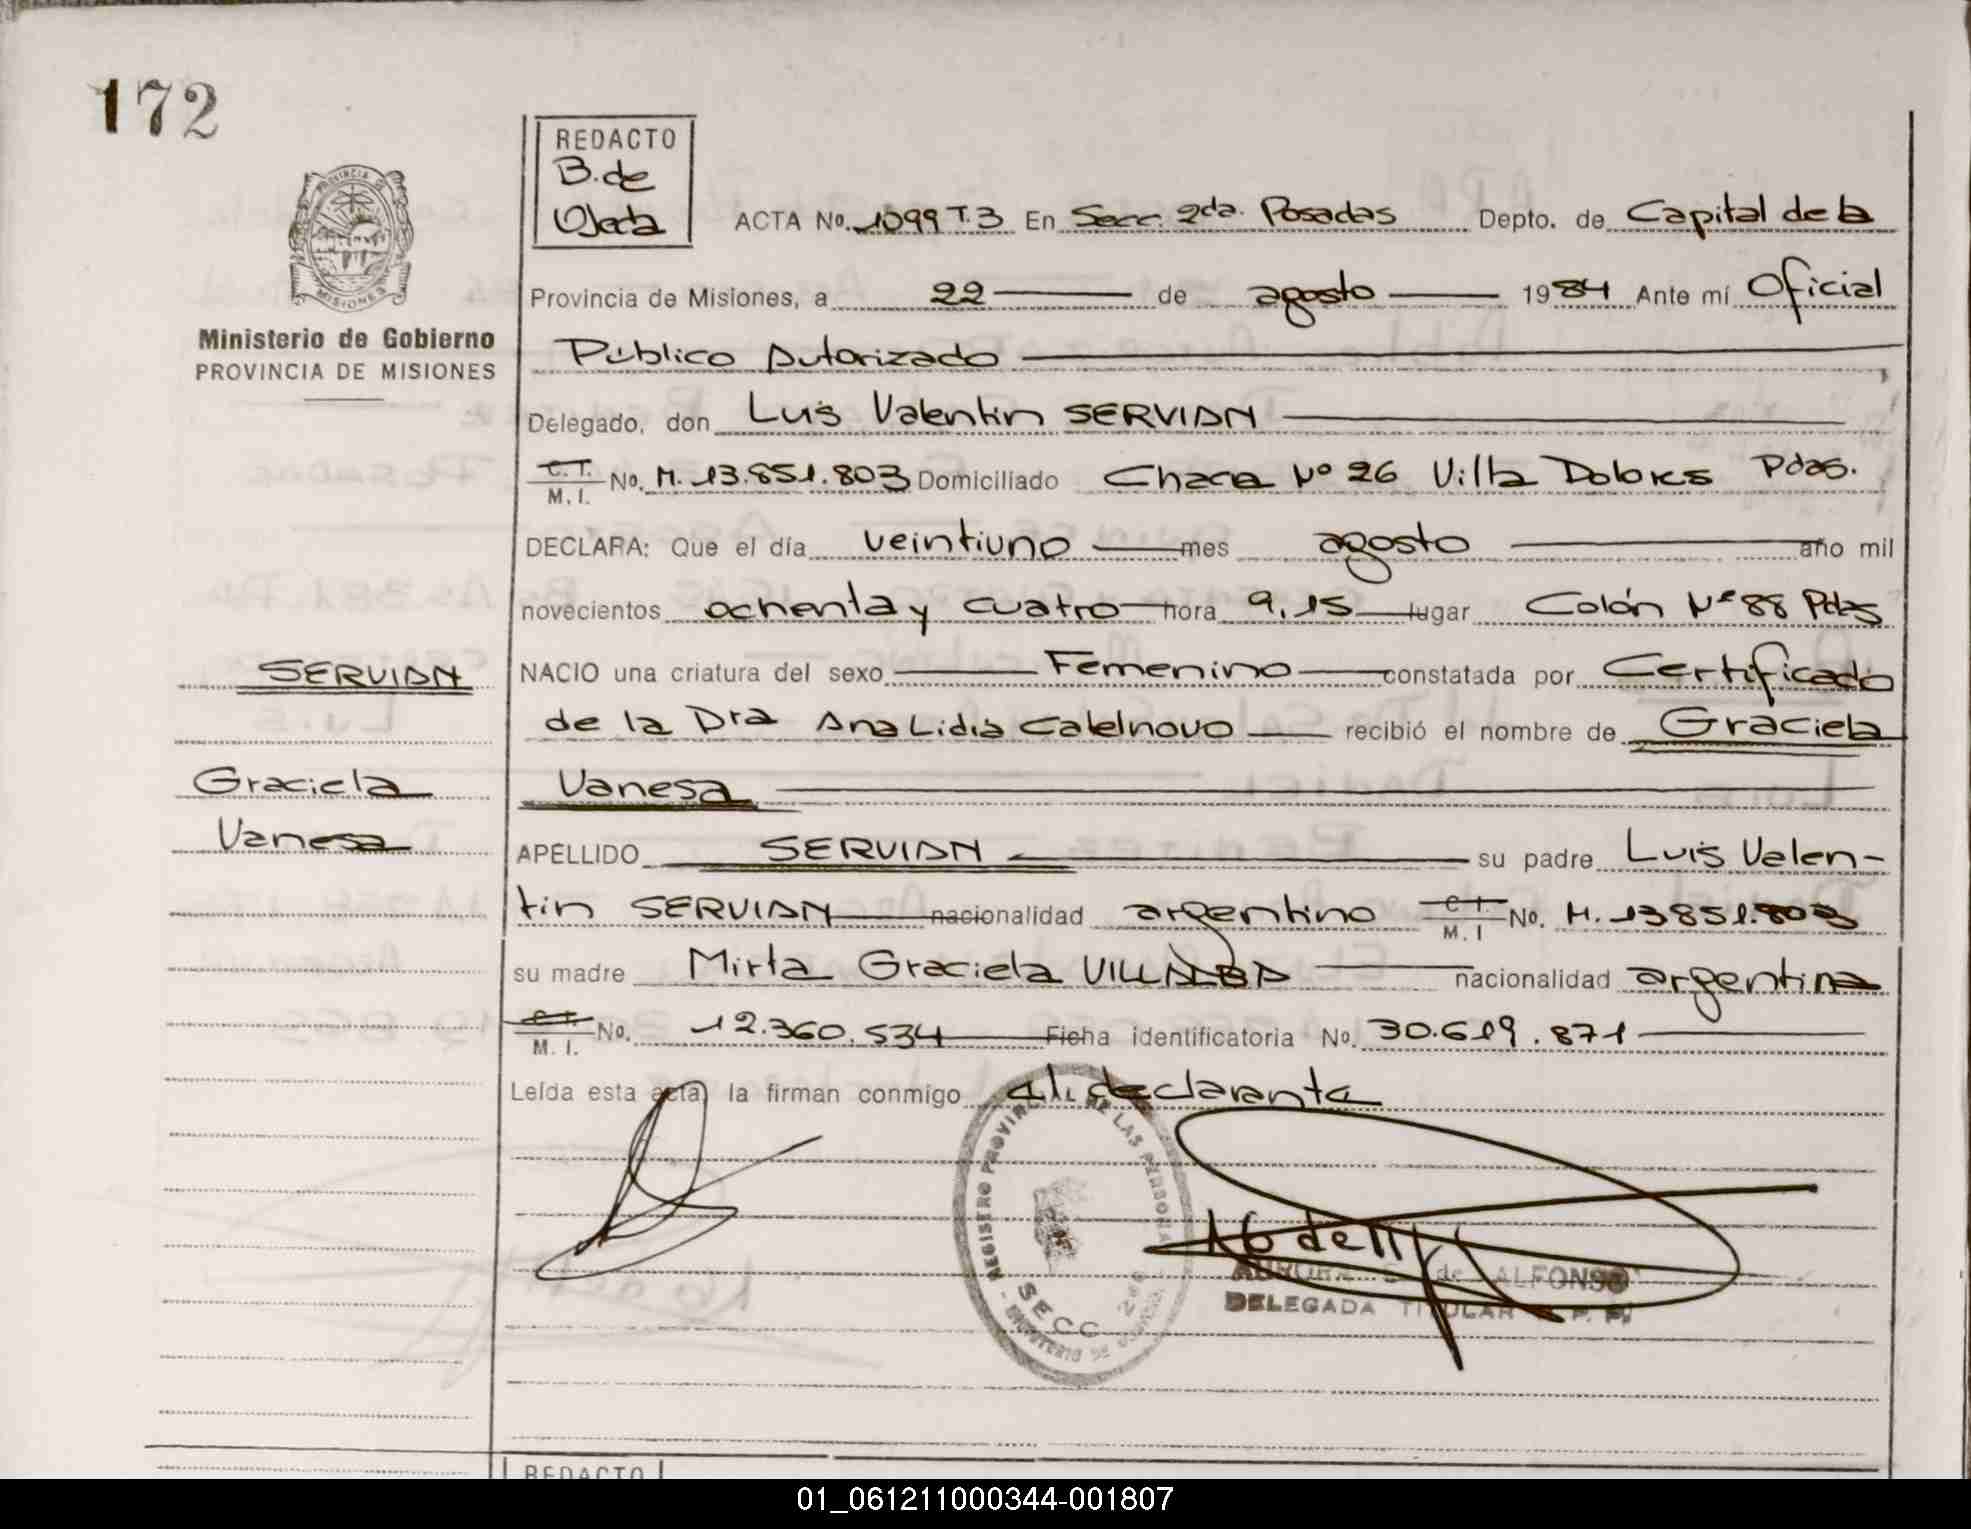 172
REDACTO
B. de
Ojeda
PROVINCIA DE
MISIONES
Ministerio de Gobierno
PROVINCIA DE MISIONES
ACTA No. 1099 T.3 En Secc. 2da. Posadas Depto. de Capital de la
Provincia de Misiones, a 22 de agosto 1984 Ante mí Oficial
Público Autorizado
Delegado, don Luis Valentin SERVIAN
C.I. M.I. No. M. 13.851.803 Domiciliado Chacra Nº 26 Villa Dolores Pdas.
DECLARA: Que el día veintiuno mes agosto año mil
novecientos ochenta y cuatro hora 9,15 lugar Colón Nº 88 Pdas
SERVIAN
NACIO una criatura del sexo Femenino constatada por Certificado
de la Dra Ana Lidia recibió el nombre de Graciela
Graciela
Vanesa
Vanesa
APELLIDO SERVIAN su padre Luis Valen-
tin SERVIAN nacionalidad argentino C.I. M.I No. M. 13851.803
su madre Mirta Graciela VILLALBA nacionalidad argentina
C.I. M.I. No. 12.360.534 Ficha identificatoria No. 30.619.871
Leída esta acta, la firman conmigo el declarante
REGISTRO PROVINCIAL DE LAS PERSONAS
SECC 2da
MINISTERIO DE GOBIERNO
AURORA S. de ALFONSO
DELEGADA TITULAR R. P. P.
REDACTO
01_061211000344-001807